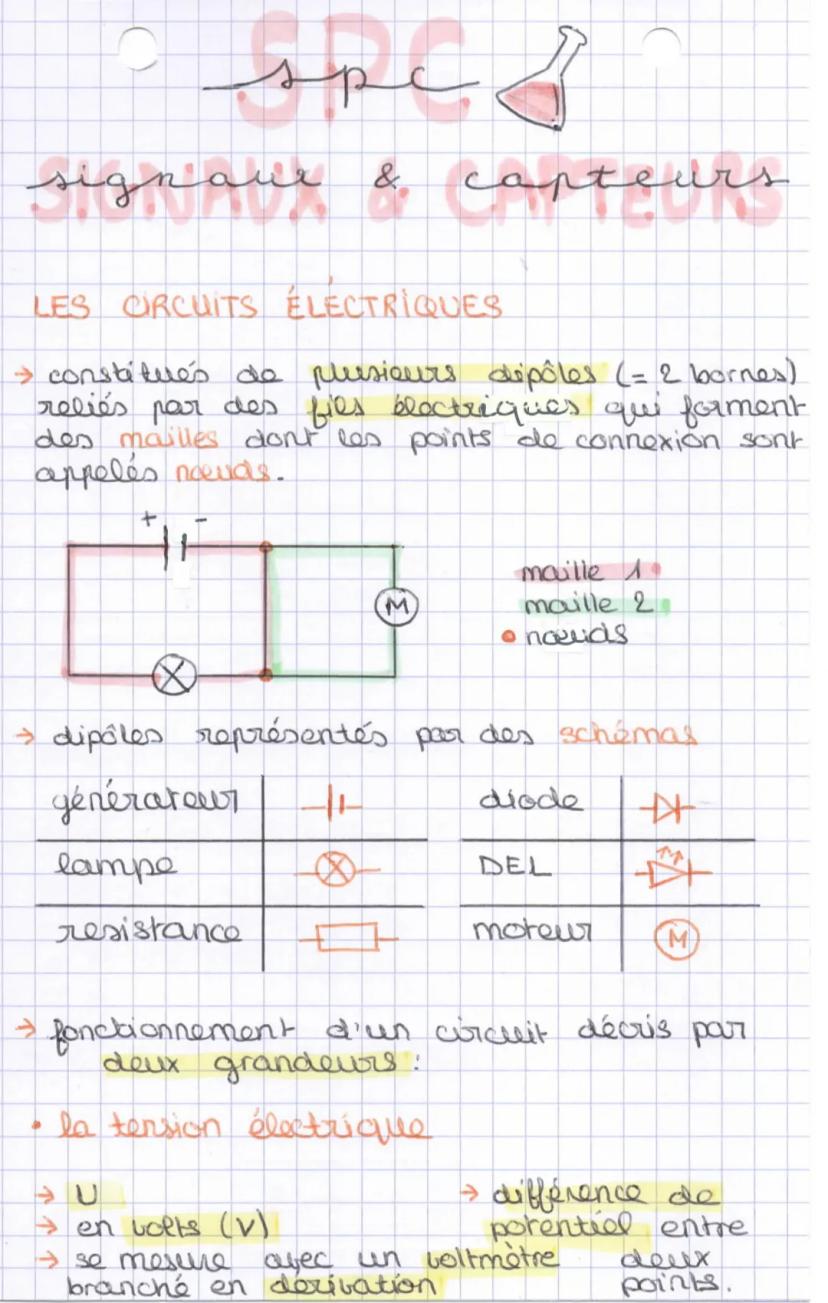 SPC
spc
SIGNAUX & CAPTEURS
signaux & capteurs
LES CIRCUITS ÉLÉCTRIQUES
→ constitués de plusieurs dipôles (= 2 bornes)
reliés par des fils électriques qui forment
des mailles dont les points de connexion sont
appelés nœuds.
+ -
M
maille 1
maille 2
• nœuds
→ dipôles représentés par des schémas
générateur
diode
lampe
DEL
resistance
moteur
M
→ fonctionnement d'un circuit décris par
deux grandeurs :
• la tension électrique
→ U
→ en volts (V)
→ se mesure avec un voltmètre
branché en derivation
→ différence de
potentiel entre
deux
points.